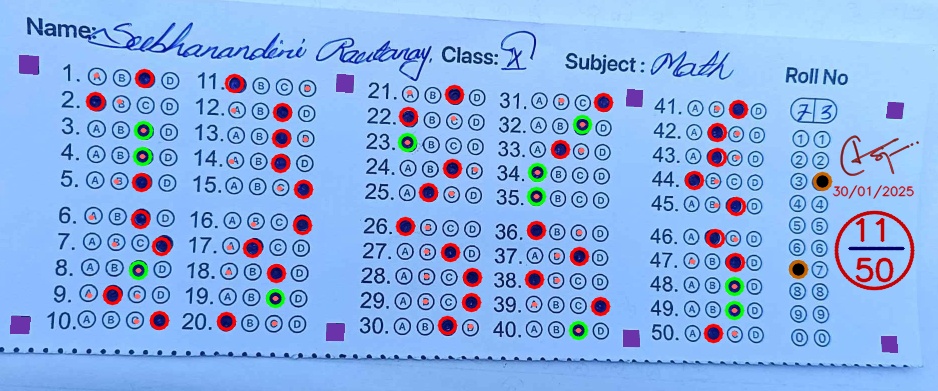 Name: Class: X Subject: Math Roll No
1. A B D
2. B C D
3. A B D
4. A B D
5. A B D
6. A B D
7. A B C
8. A B D
9. A C D
10. A B C
11. B C D
12. A B D
13. A B D
14. A B D
15. A B C
16. A B C
17. A C D
18. A B D
19. A B D
20. B C D
21. A B D
22. B C D
23. B C D
24. A B D
25. A C D
26. B C D
27. A B D
28. A B C
29. A B C
30. A B D
31. A B C
32. A B D
33. A C D
34. B C D
35. B C D
36. B C D
37. A B D
38. B C D
39. A B C
40. A B D
41. A B D
42. A C D
43. A C D
44. B C D
45. A B D
46. A C D
47. A B D
48. A B D
49. A B D
50. A C D
73
1 1
2 2
3
4 4
5 5
6 6
7
8 8
9 9
0 0
30/01/2025
11
50